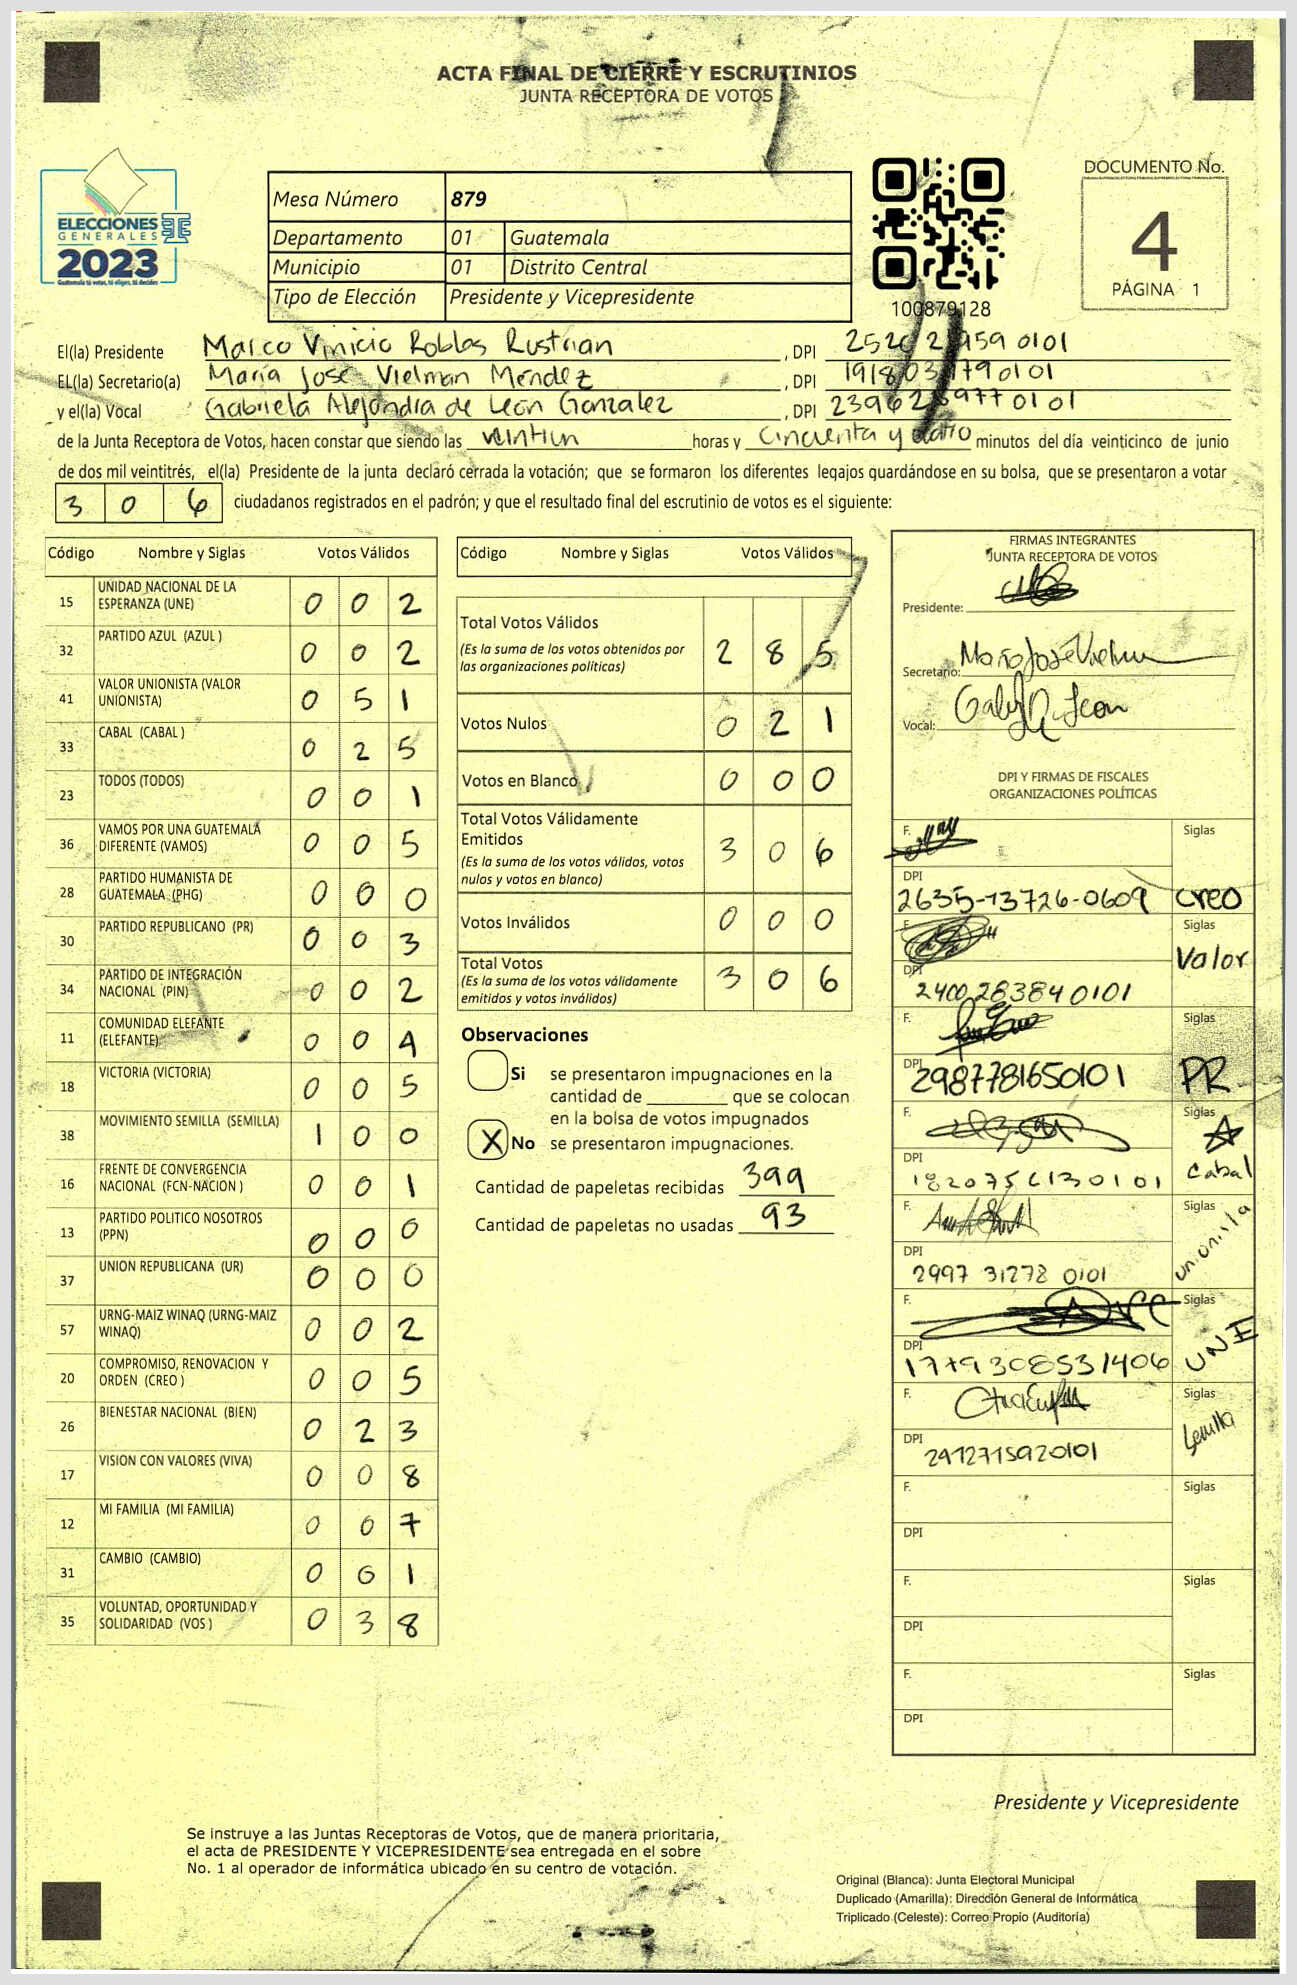 ACTA FINAL DE CIERRE Y ESCRUTINIOS
JUNTA RECEPTORA DE VOTOS
ELECCIONES
GENERALES
2023
Guatemala tú votas, tú eliges, tú decides
Mesa Número 879
Departamento 01 Guatemala
Municipio 01 Distrito Central
Tipo de Elección Presidente y Vicepresidente
100879128
DOCUMENTO No.
4
PÁGINA 1
El(la) Presidente Marco Vinicio Robles Rustrian , DPI
EL(la) Secretario(a) María José Vielman Méndez , DPI
y el(la) Vocal Gabriela Alejandra de León Gonzalez , DPI
de la Junta Receptora de Votos, hacen constar que siendo las veintiun horas y cincuenta y cuatro minutos del día veinticinco de junio
de dos mil veintitrés, el(la) Presidente de la junta declaró cerrada la votación; que se formaron los diferentes legajos guardándose en su bolsa, que se presentaron a votar
3 0 6 ciudadanos registrados en el padrón; y que el resultado final del escrutinio de votos es el siguiente:
Código Nombre y Siglas Votos Válidos
15 UNIDAD NACIONAL DE LA ESPERANZA (UNE) 0 0 2
32 PARTIDO AZUL (AZUL ) 0 0 2
41 VALOR UNIONISTA (VALOR UNIONISTA) 0 5 1
33 CABAL (CABAL ) 0 2 5
23 TODOS (TODOS) 0 0 1
36 VAMOS POR UNA GUATEMALA DIFERENTE (VAMOS) 0 0 5
28 PARTIDO HUMANISTA DE GUATEMALA (PHG) 0 0 0
30 PARTIDO REPUBLICANO (PR) 0 0 3
34 PARTIDO DE INTEGRACIÓN NACIONAL (PIN) 0 0 2
11 COMUNIDAD ELEFANTE (ELEFANTE) 0 0 4
18 VICTORIA (VICTORIA) 0 0 5
38 MOVIMIENTO SEMILLA (SEMILLA) 1 0 0
16 FRENTE DE CONVERGENCIA NACIONAL (FCN-NACION ) 0 0 1
13 PARTIDO POLITICO NOSOTROS (PPN) 0 0 0
37 UNION REPUBLICANA (UR) 0 0 0
57 URNG-MAIZ WINAQ (URNG-MAIZ WINAQ) 0 0 2
20 COMPROMISO, RENOVACION Y ORDEN (CREO ) 0 0 5
26 BIENESTAR NACIONAL (BIEN) 0 2 3
17 VISION CON VALORES (VIVA) 0 0 8
12 MI FAMILIA (MI FAMILIA) 0 0 7
31 CAMBIO (CAMBIO) 0 0 1
35 VOLUNTAD, OPORTUNIDAD Y SOLIDARIDAD (VOS ) 0 3 8
Código Nombre y Siglas Votos Válidos
Total Votos Válidos 2 8 5
(Es la suma de los votos obtenidos por
las organizaciones políticas)
Votos Nulos 0 2 1
Votos en Blanco 0 0 0
Total Votos Válidamente
Emitidos 3 0 6
(Es la suma de los votos válidos, votos
nulos y votos en blanco)
Votos Inválidos 0 0 0
Total Votos 3 0 6
(Es la suma de los votos válidamente
emitidos y votos inválidos)
Observaciones
Si se presentaron impugnaciones en la
cantidad de ________ que se colocan
en la bolsa de votos impugnados
X No se presentaron impugnaciones.
Cantidad de papeletas recibidas 399
Cantidad de papeletas no usadas 93
FIRMAS INTEGRANTES
JUNTA RECEPTORA DE VOTOS
Presidente:
Secretario: María José Vielman
Vocal:
DPI Y FIRMAS DE FISCALES
ORGANIZACIONES POLÍTICAS
F. Siglas
DPI 2635-13726-0609 creo
F. Siglas
DPI 2400 28384 0101 Valor
F. Siglas
DPI 2987781650101 PR
F. Siglas
DPI Cabal
F. Siglas
DPI 2997 31278 0101 unionista
F. Siglas
DPI UNE
F. Siglas
DPI 2912715920101 Semilla
F. Siglas
DPI
F. Siglas
DPI
F. Siglas
DPI
Presidente y Vicepresidente
Se instruye a las Juntas Receptoras de Votos, que de manera prioritaria,
el acta de PRESIDENTE Y VICEPRESIDENTE sea entregada en el sobre
No. 1 al operador de informática ubicado en su centro de votación.
Original (Blanca): Junta Electoral Municipal
Duplicado (Amarilla): Dirección General de Informática
Triplicado (Celeste): Correo Propio (Auditoría)